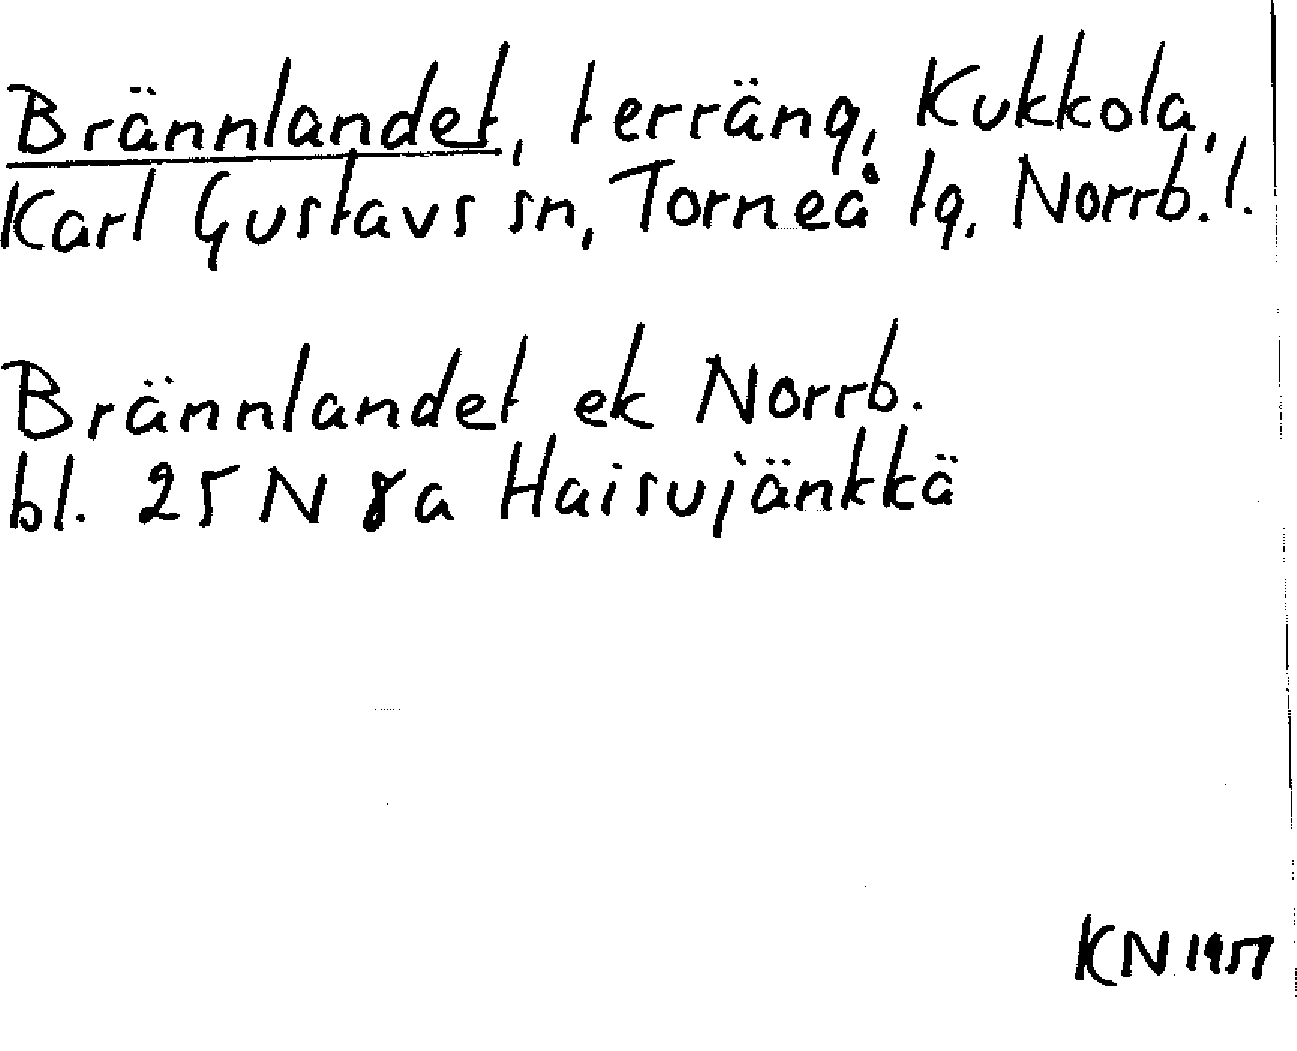 Brännlandet, terräng, Kukkola,
Karl Gustavs sn, Torneå tg, Norrb. l.
Brännlandet ek Norrb.
bl. 25 N 8a Haisujänkkä
KN 1957